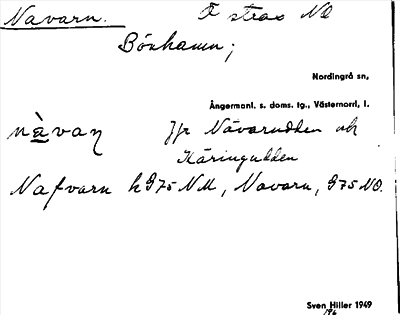 Navarn. Ö strax NO
Bönhamn;
Nordingrå sn,
Ångermanl. s. doms. tg., Västernorrl. l.
nàvaŋ Jfr Navarudden och
Käringudden
Nafvarn k 975 NM, Navarn, 975 NO.
Sven Hiller 1949